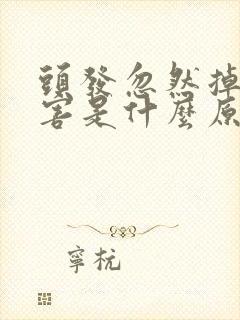 頭發忽然掉
害是什麼原
寧杬